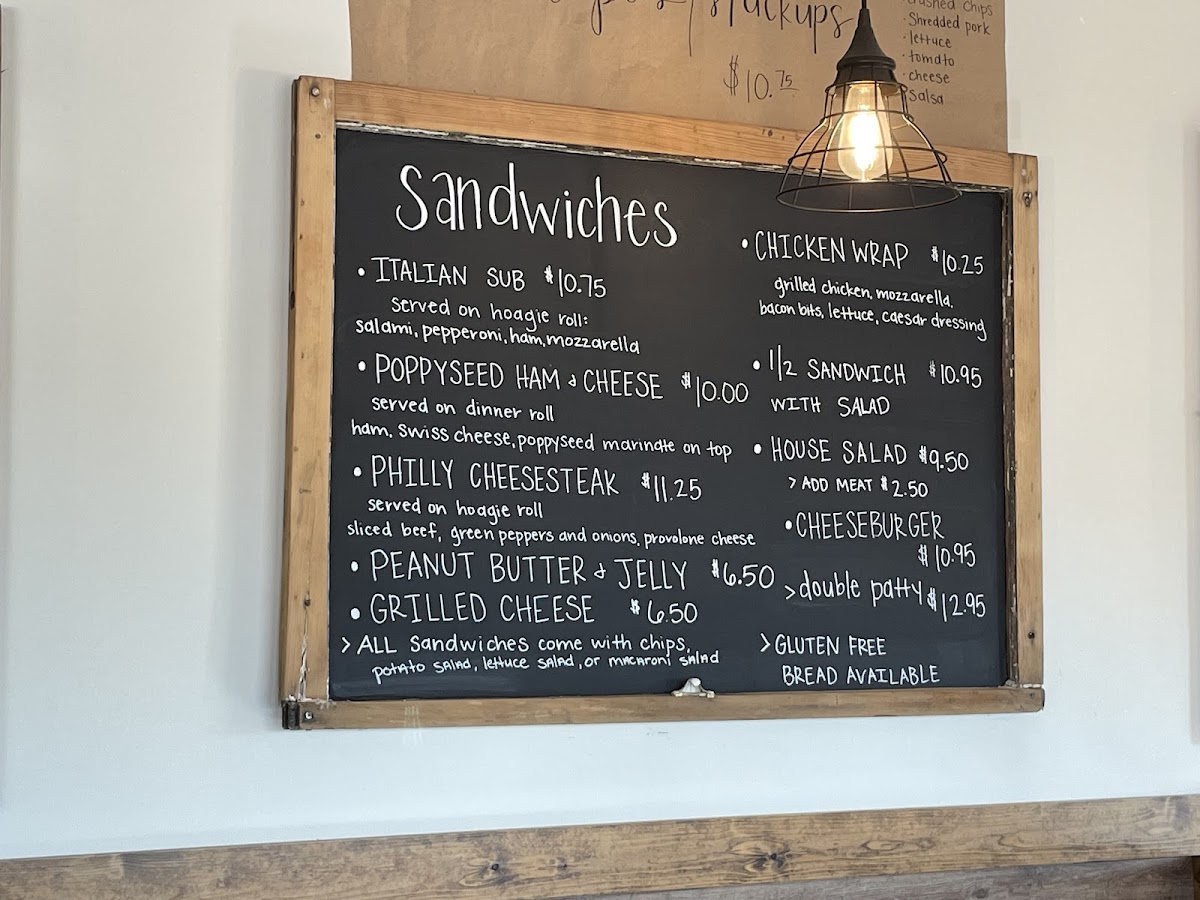 stackups
$10.75
crushed chips
· Shredded pork
· lettuce
· tomato
· cheese
· salsa
Sandwiches
• ITALIAN SUB $10.75
served on hoagie roll:
salami, pepperoni, ham, mozzarella
• POPPYSEED HAM & CHEESE $10.00
served on dinner roll
ham, swiss cheese, poppyseed marinate on top
• PHILLY CHEESESTEAK $11.25
served on hoagie roll
sliced beef, green peppers and onions, provolone cheese
• PEANUT BUTTER & JELLY $6.50
• GRILLED CHEESE $6.50
> ALL Sandwiches come with chips,
potato salad, lettuce salad, or macaroni salad
• CHICKEN WRAP $10.25
grilled chicken, mozzarella,
bacon bits, lettuce, caesar dressing
• 1/2 SANDWICH $10.95
WITH SALAD
• HOUSE SALAD $9.50
> ADD MEAT $2.50
• CHEESEBURGER
$10.95
> double patty $12.95
> GLUTEN FREE
BREAD AVAILABLE